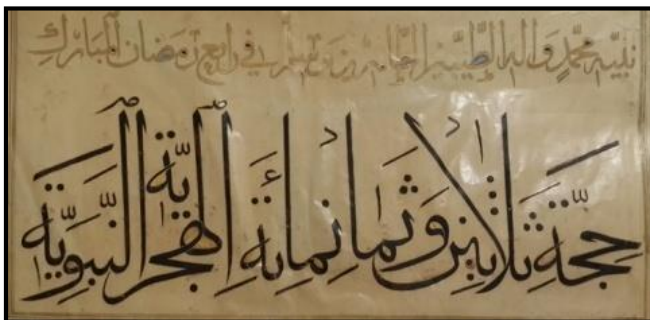 نبيه محمد واله الطيبين الطاهرين في رابع رمضان المبارك
حِجَّة ثلاثين وثمانمائة الهجرية النبوية